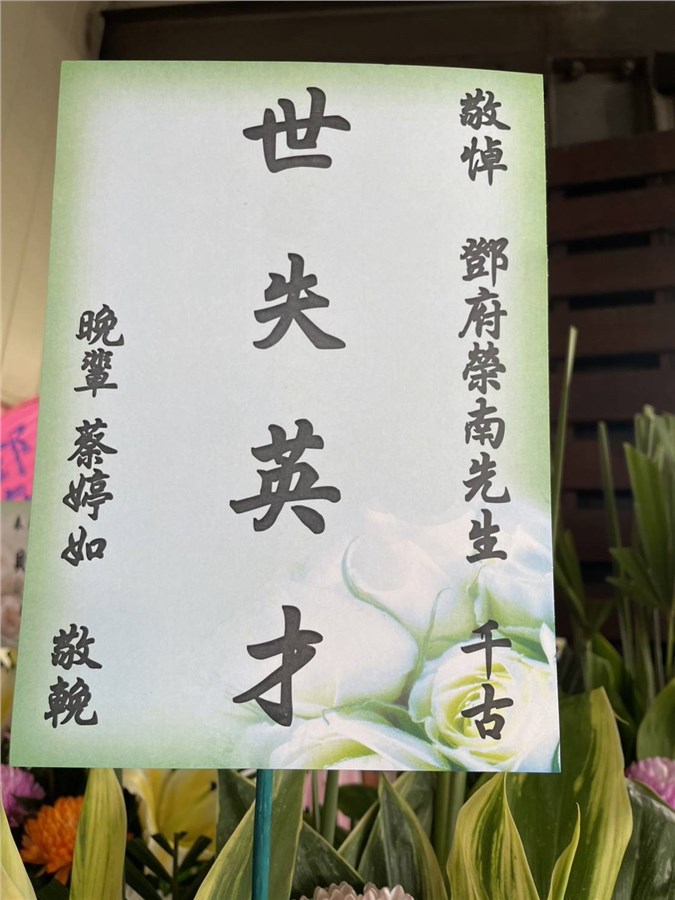 敬悼 鄧府榮南先生 千古
世失英才
晚輩 蔡婷如 敬輓